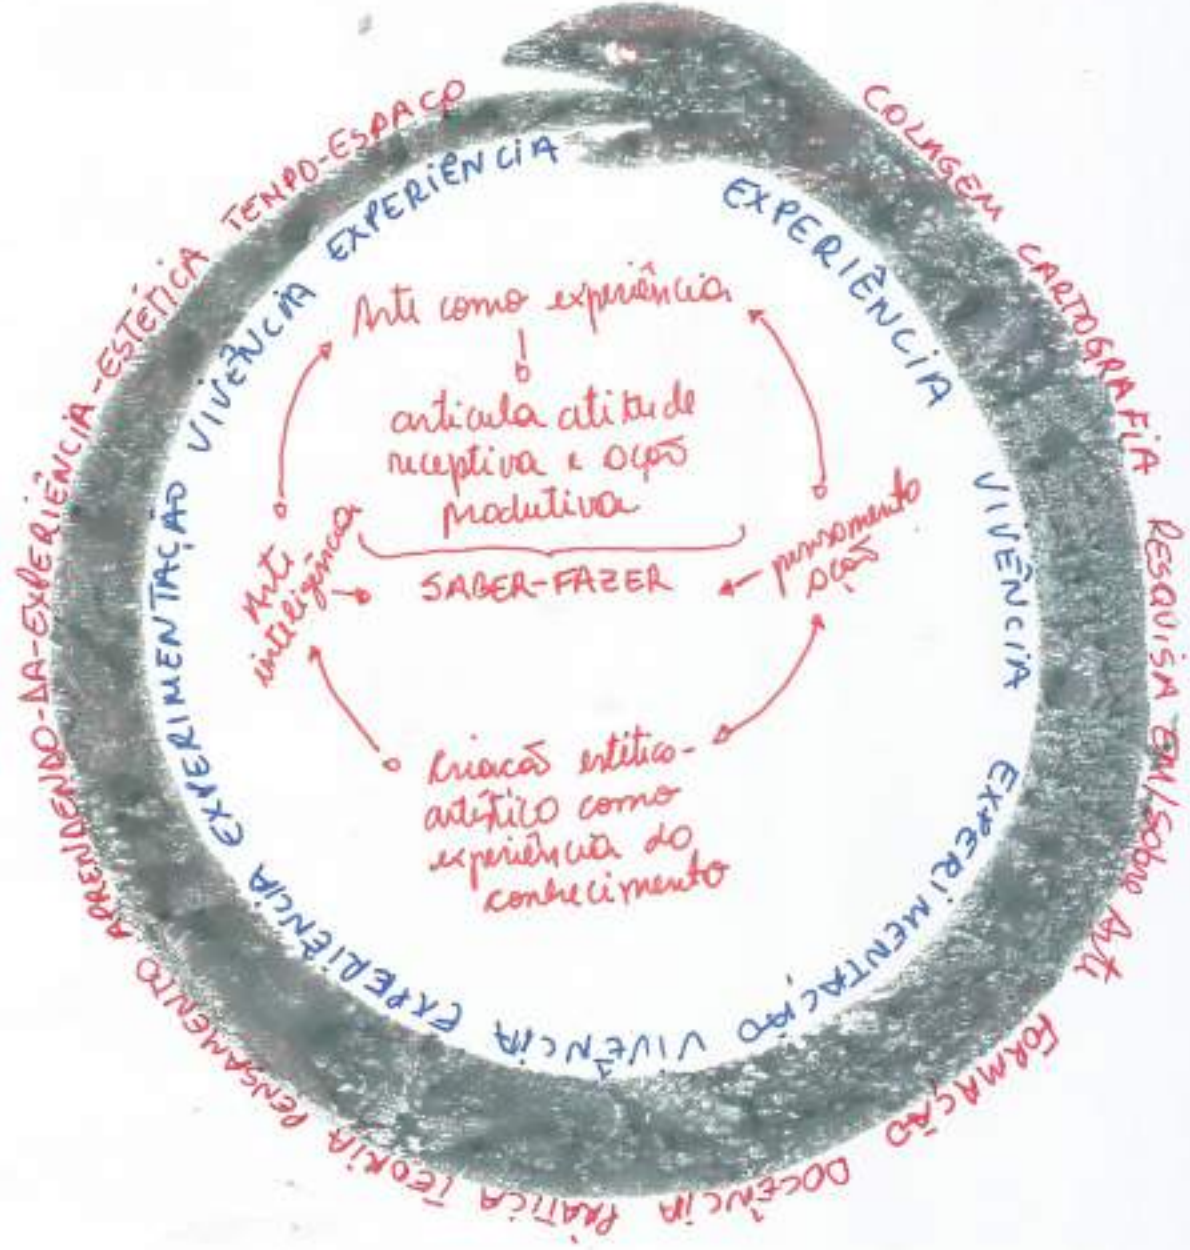 COLAGEM CARTOGRAFIA PESQUISA EM/sobre Arte FORMAÇÃO DOCÊNCIA PRÁTICA TEORIA PENSAMENTO APRENDENDO-DA-EXPERIÊNCIA-ESTÉTICA TEMPO-ESPAÇO
EXPERIÊNCIA VIVÊNCIA EXPERIMENTAÇÃO VIVÊNCIA EXPERIÊNCIA EXPERIÊNCIA EXPERIMENTAÇÃO VIVÊNCIA EXPERIÊNCIA
Arte como experiência
articula atitude
receptiva e ação
produtiva
Arte
inteligência
SABER-FAZER
pensamento
ação
Criação estético-
artístico como
experiência do
conhecimento